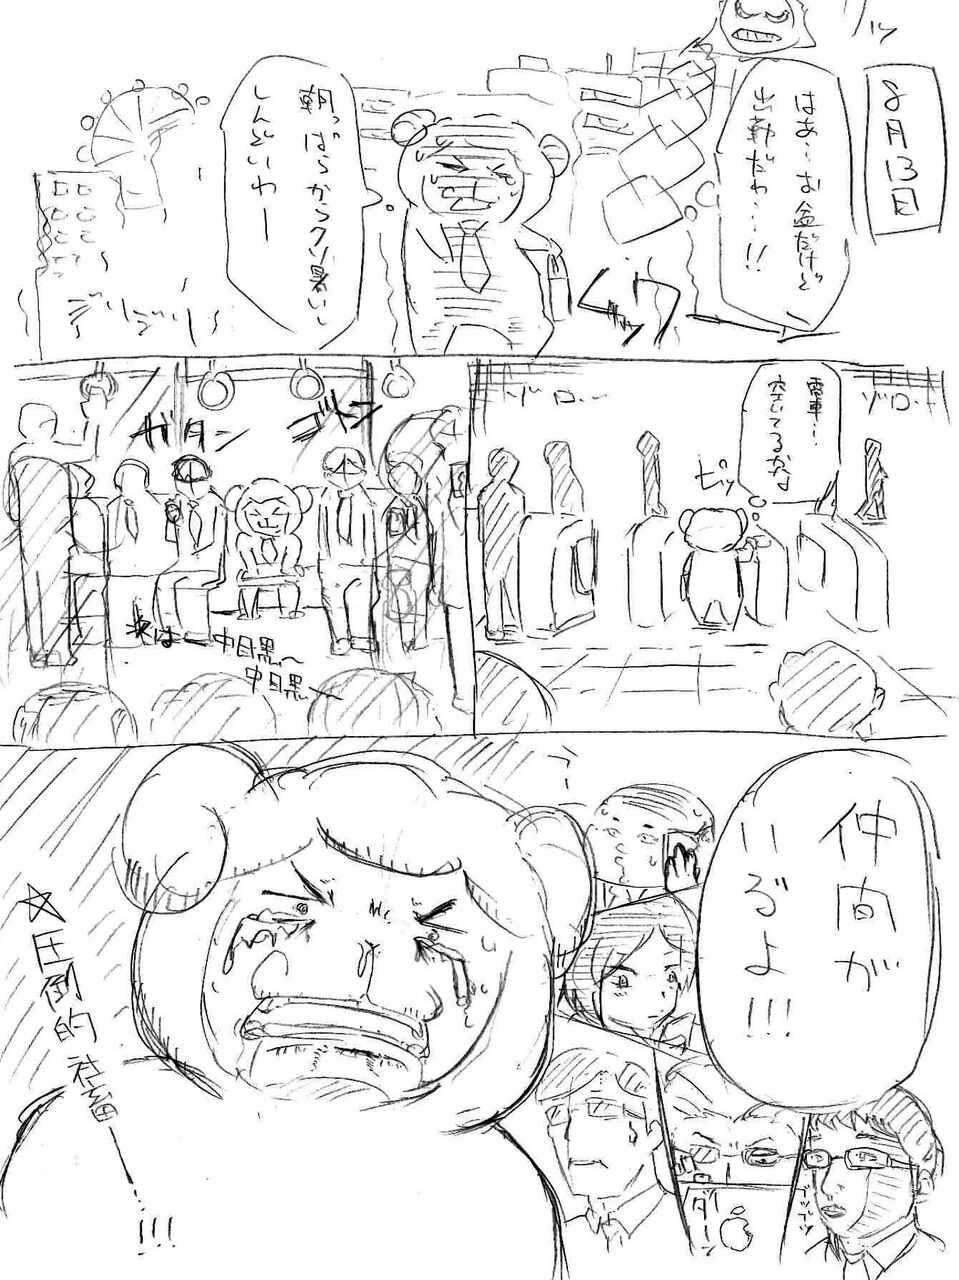 8月13日
はあ…お盆だけど
出勤だわ…!!
朝っぱらからクソ暑いし
しんどいわー
ゾロ…
ゾロ…
電車…
空いてるかなぁ
ピッ
ガタン
ゴトン
次はー中目黒〜
中目黒ー
仲間が
いるよ!!!
ダーン
ブツブツ
☆圧倒的社畜ー…!!!